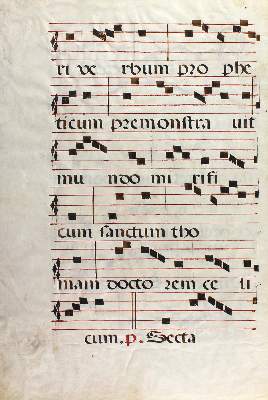 ri ve rbum pro phe
ticum premonstra vit
mu ndo mi rifi
cum sanctum tho
mam docto rem ce li
cum. p. Secta